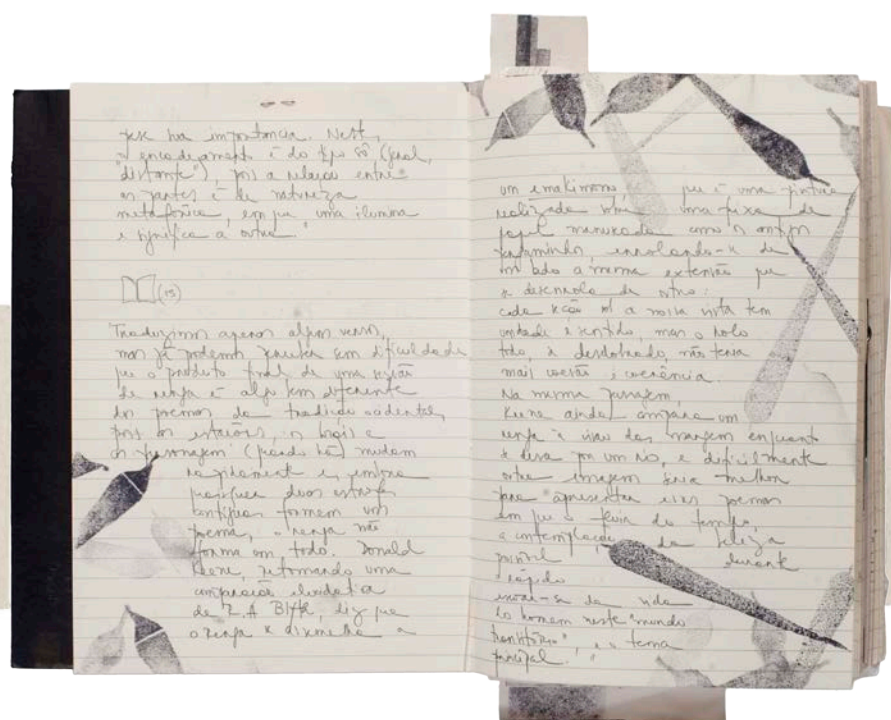 tese ha importancia. Nest,
o encadeamento é do tipo só (geral,
"distante"), pois a relação entre
as partes é de natureza
metafórica, em que uma ilumina
e significa a outra."
(15)
Traduzimos apenas alguns versos,
mas já podemos perceber sem dificuldade
que o produto final de uma sessão
de renga é algo bem diferente
dos poemas da tradição ocidental,
pois as estações, os locais e
os personagens (quando há) mudam
rapidamente e, embora
quaisquer duas estrofes
contíguas formem um
poema, o renga não
forma um todo. Donald
Keene, retomando uma
comparação elucidativa
de R. H. Blyth, diz que
o renga se assemelha a
um emakimono, que é uma pintura
realizada sobre uma faixa de
papel manuseada como os antigos
pergaminhos, enrolando-se de
um lado a mesma extensão que
se desenrola de outro:
cada seção sob a nossa vista tem
unidade e sentido, mas o rolo
todo, se desdobrado, não teria
mais coesão e coerência.
Na mesma passagem,
Keene ainda compara um
renga à visão das margens enquanto
se desce por um rio, e dificilmente
outra imagem seria melhor
para apresentar esses poemas
em que o fluir do tempo,
a contemplação da beleza
durante
o rápido
da vida
do homem neste "mundo
transitório", é o tema
principal."